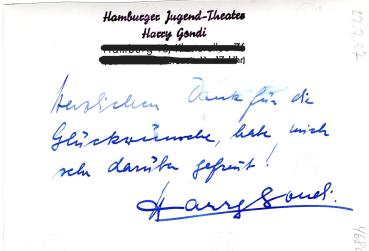 Hamburger Jugend-Theater
Harry Gondi
Herzlichen Dank für die
Glückwünsche, habe mich
sehr darüber gefreut!
Harry Gondi.